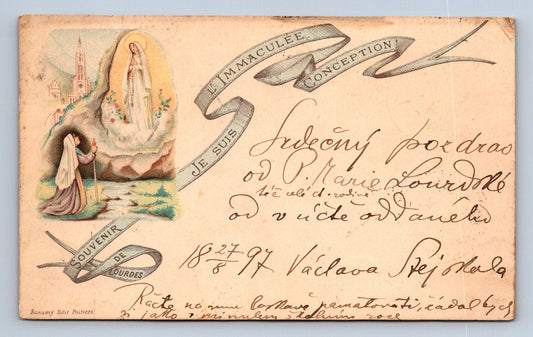 SOUVENIR DE LOURDES
JE SUIS L'IMMACULÉE CONCEPTION
Srdečný pozdrav
od P. Marie Lourdské
též celé d. rodině
od v úctě oddaného
18 27/8 97 Václava Stejskala
Račte na mne laskavě pamatovati, žádal bych
jako v minulém školním roce
Bonamy Edit Poitiers